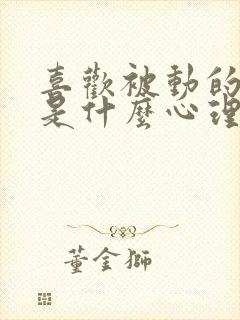 喜歡被動的
是什麼心理
董金獅